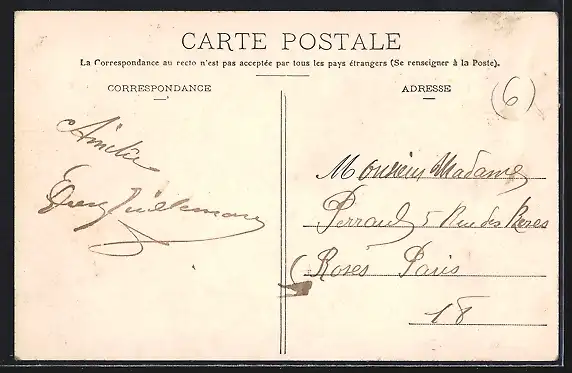 CARTE POSTALE
La Correspondance au recto n'est pas acceptée par tous les pays étrangers (Se renseigner à la Poste).
CORRESPONDANCE
ADRESSE
6
Monsieur Madame
Perraud 5 Rue des
Roses Paris
18